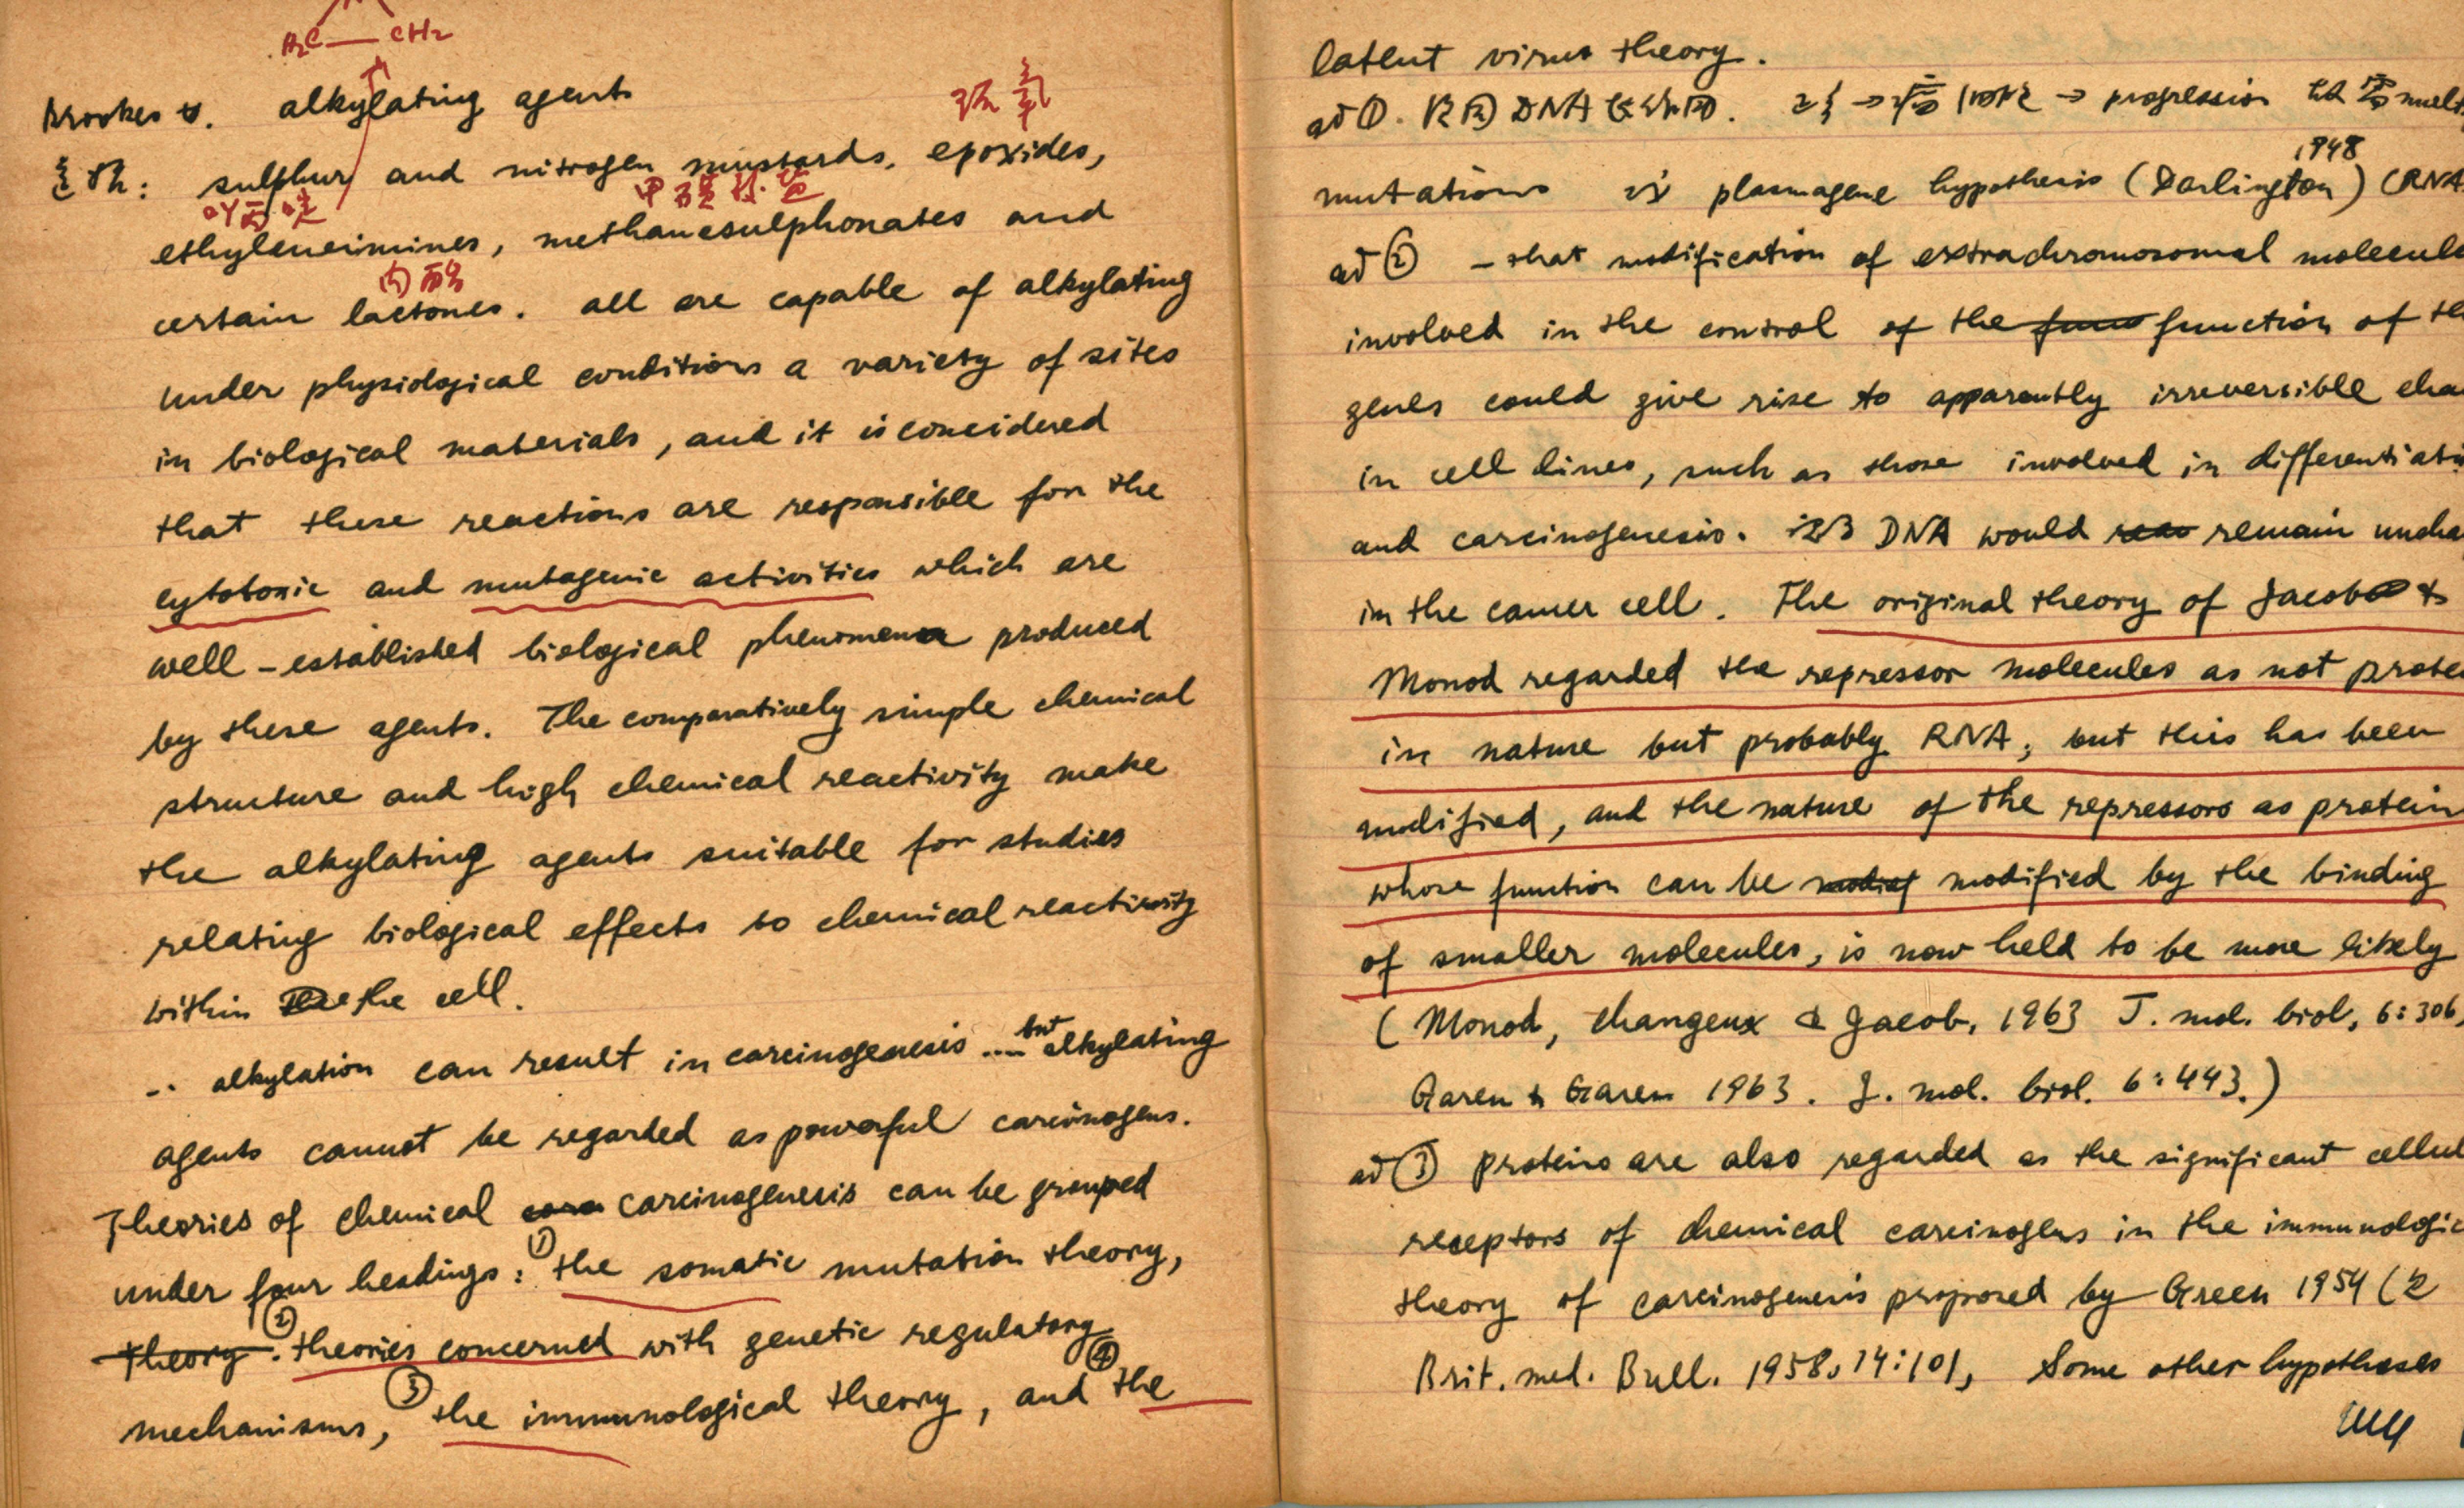 H₂C — CH₂
Brookes alkylating agents
环氧
sulphur and nitrogen mustards, epoxides,
吖丙啶 甲磺酸盐
ethyleneimines, methanesulphonates and
内酯
certain lactones. all are capable of alkylating
under physiological conditions a variety of sites
in biological materials, and it is considered
that these reactions are responsible for the
cytotoxic and mutagenic activities which are
well-established biological phenomena produced
by these agents. The comparatively simple chemical
structure and high chemical reactivity make
the alkylating agents suitable for studies
relating biological effects to chemical reactivity
within the cell.
∴ alkylation can result in carcinogenesis .... but alkylating
agents cannot be regarded as powerful carcinogens.
Theories of chemical carcinogenesis can be grouped
under four headings: ① the somatic mutation theory,
theory. ② theories concerned with genetic regulatory
mechanisms, ③ the immunological theory, and ④ the
latent virus theory.
ad ①. DNA → → progression
1948
mutations plasmagene hypothesis (Darlington) (RNA
ad ② - that modification of extrachromosomal molecule
involved in the control of the function of th
genes could give rise to apparently irreversible cha
in cell lines, such as those involved in differentiati
and carcinogenesis. DNA would remain uncha
in the cancer cell. The original theory of Jacob &
Monod regarded the repressor molecules as not protei
in nature but probably RNA, but this has been
modified, and the nature of the repressors as protein
whose function can be modified by the binding
of smaller molecules, is now held to be more likely
(Monod, Changeux & Jacob, 1963 J. mol. biol, 6:306,
Garen & Garen 1963. J. mol. biol. 6:443.)
ad ③ proteins are also regarded as the significant cellul
receptors of chemical carcinogens in the immunologic
theory of carcinogenesis proposed by Green 1954 (
Brit. med. Bull. 1958, 14:101, Some other hypotheses